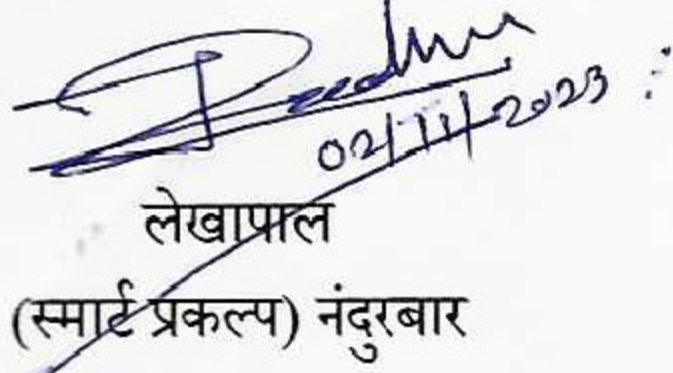 02/11/2023
लेखापाल
(स्मार्ट प्रकल्प) नंदुरबार